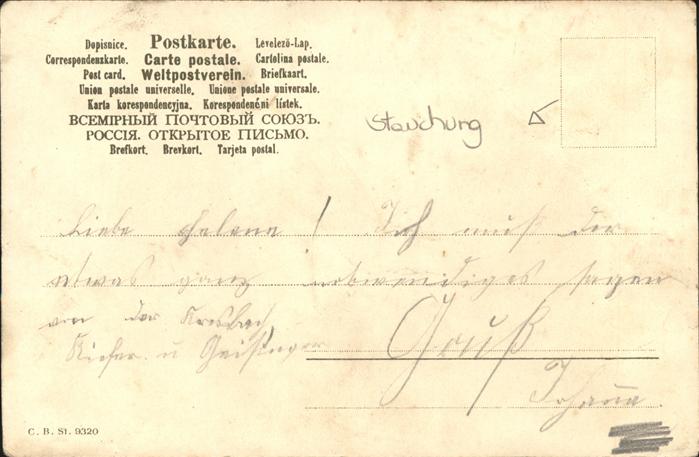 Dopisnice. Postkarte. Levelező-Lap.
Correspondenzkarte. Carte postale. Cartolina postale.
Post card. Weltpostverein. Briefkaart.
Union postale universelle. Unione postale universale.
Karta korespondencyjna. Korespondenční lístek.
ВСЕМІРНЫЙ ПОЧТОВЫЙ СОЮЗЪ.
РОССІЯ. ОТКРЫТОЕ ПИСЬМО.
Brefkort. Brevkort. Tarjeta postal.
Stauchung
Liebe Helene! Ich muß Dir
etwas ganz notwendiges sagen
von der
Kiefer. u
Gruß
Johanna.
C. B. S1. 9320